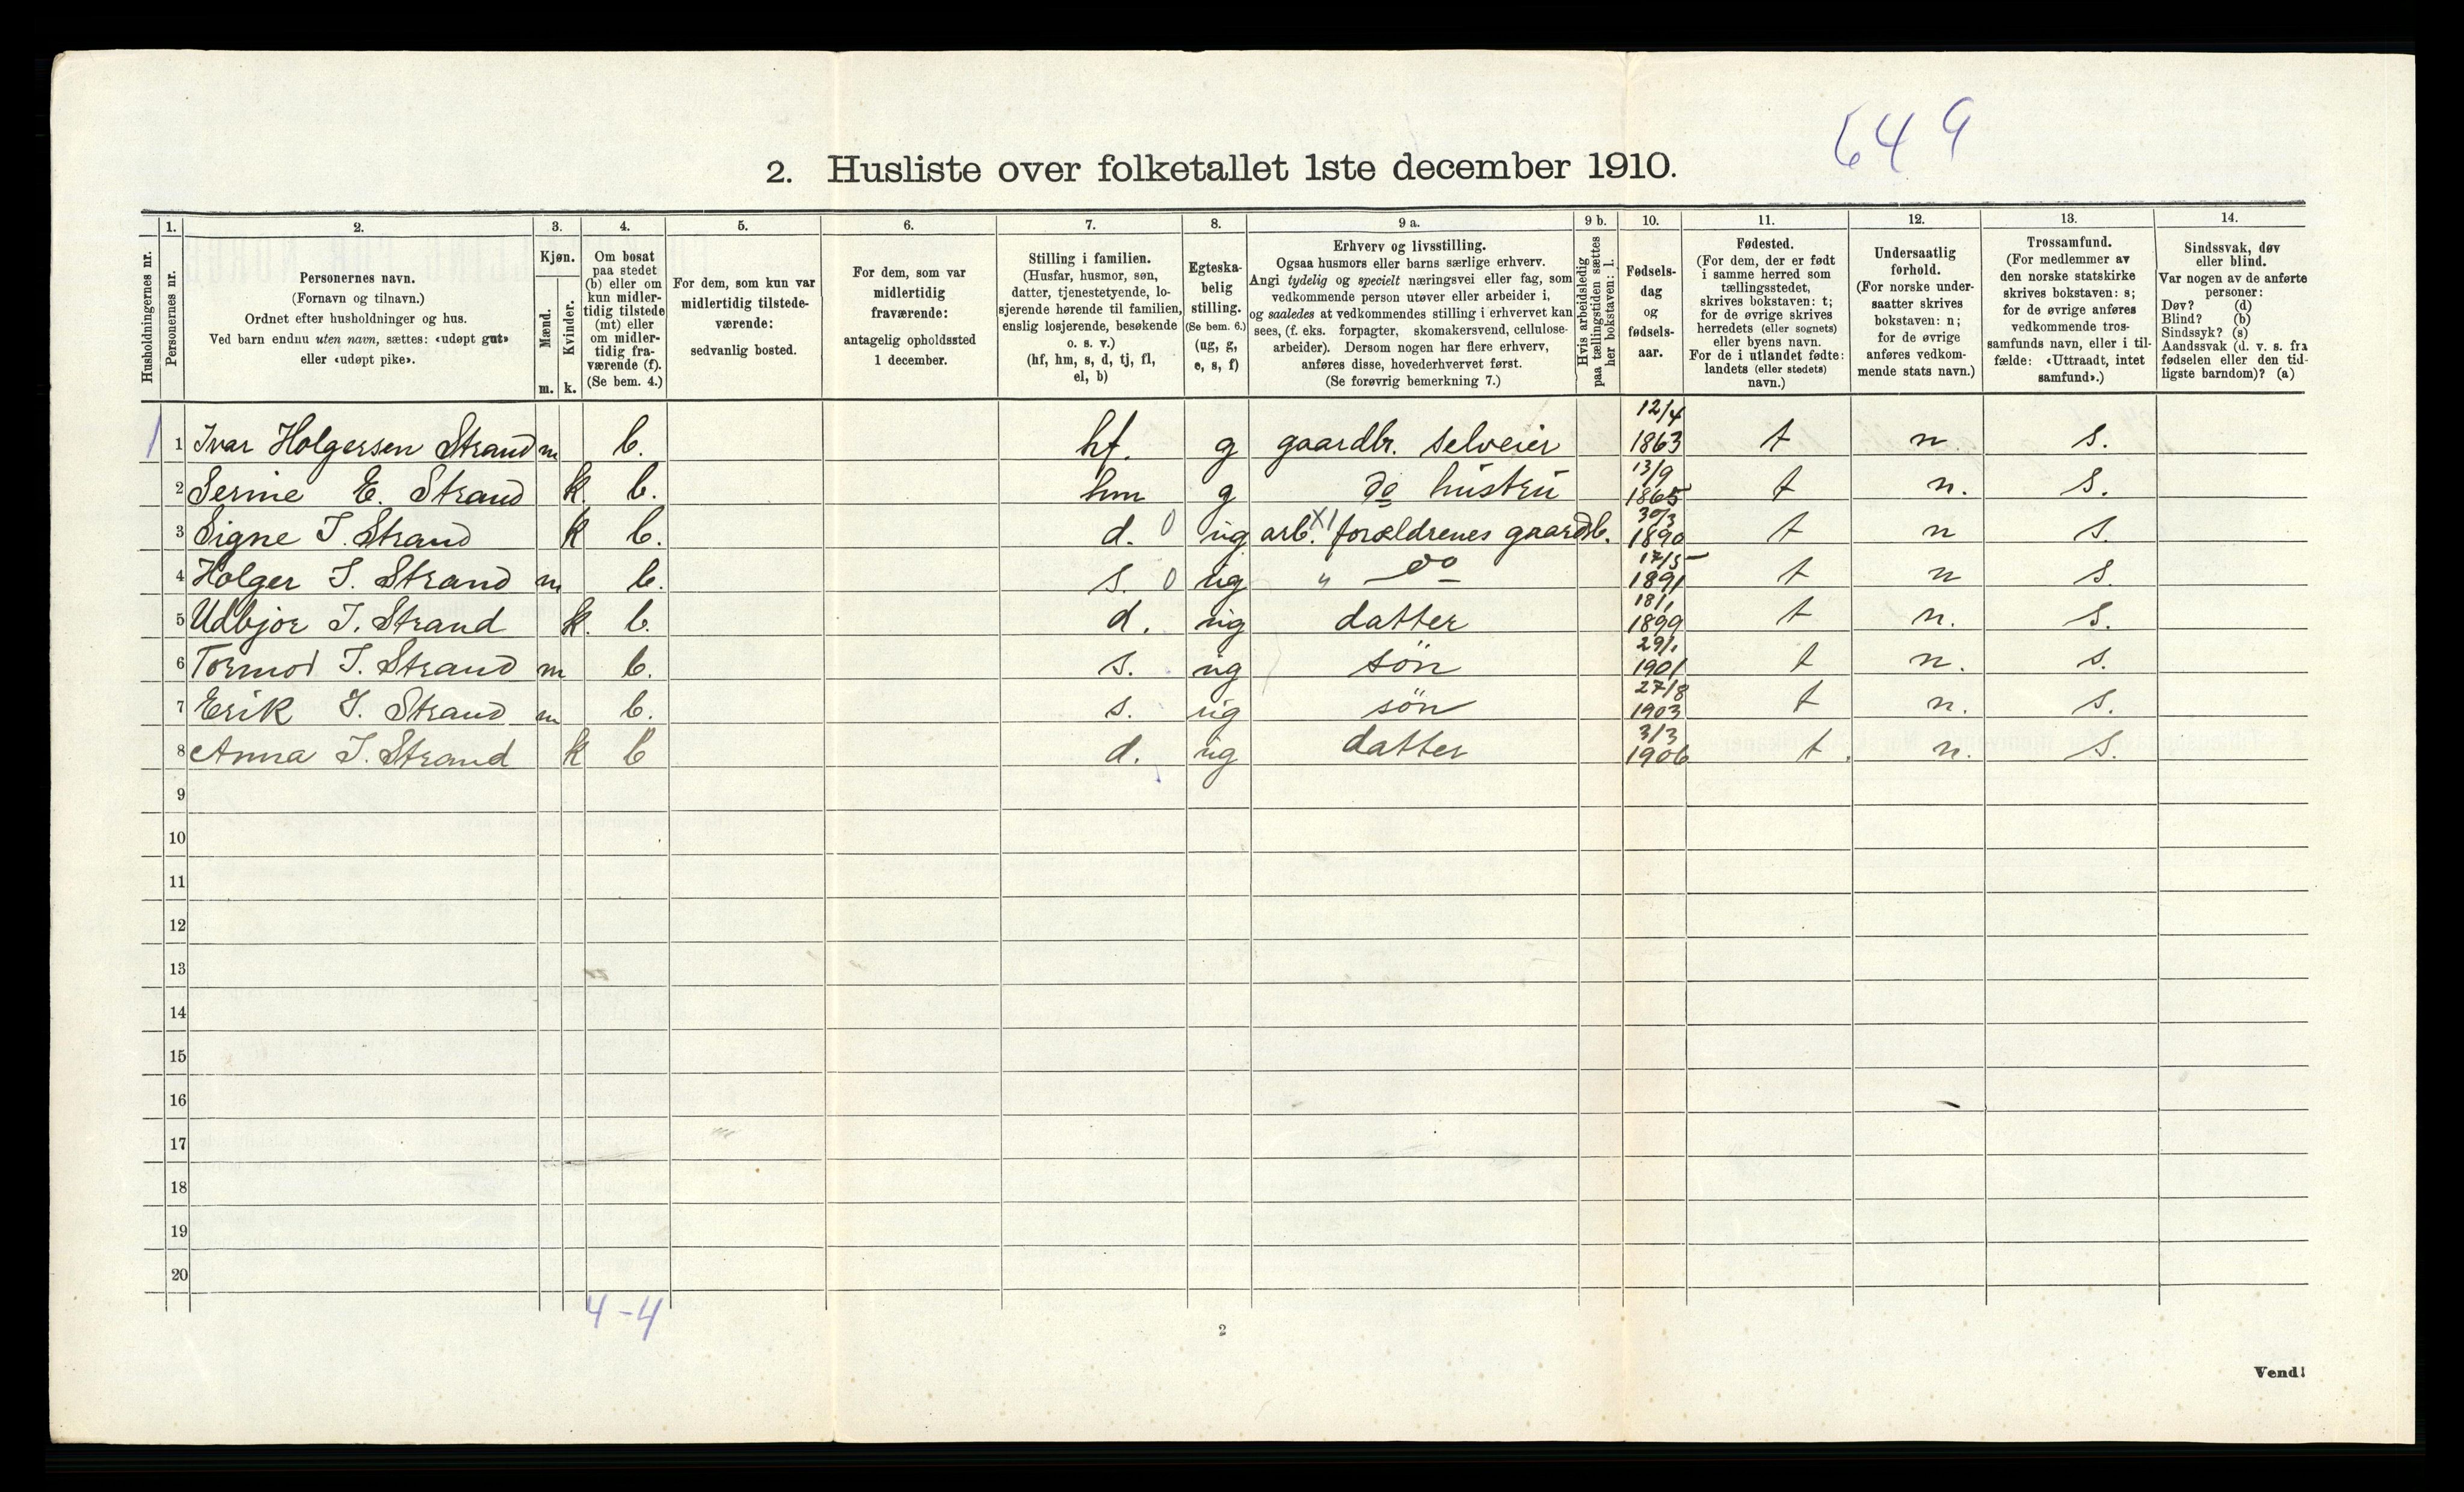 649
2. Husliste over folketallet 1ste december 1910.
Husholdningernes nr.
1.
Personernes nr.
2.
Personernes navn.
(Fornavn og tilnavn.)
Ordnet efter husholdninger og hus.
Ved barn endnu uten navn, sættes: «udøpt gut»
eller «udøpt pike».
3.
Kjøn.
Mænd.
Kvinder.
m. k.
4.
Om bosat
paa stedet
(b) eller om
kun midler-
tidig tilstede
(mt) eller
om midler-
tidig fra-
værende (f).
(Se bem. 4.)
5.
For dem, som kun var
midlertidig tilstede-
værende:
sedvanlig bosted.
6.
For dem, som var
midlertidig
fraværende:
antagelig opholdssted
1 december.
7.
Stilling i familien.
(Husfar, husmor, søn,
datter, tjenestetyende, lo-
sjerende hørende til familien,
enslig losjerende, besøkende
o. s. v.)
(hf, hm, s, d, tj, fl,
el, b)
8.
Egteska-
belig
stilling.
(Se bem. 6.)
(ug, g,
e, s, f)
9 a.
Erhverv og livsstilling.
Ogsaa husmors eller barns særlige erhverv.
Angi tydelig og specielt næringsvei eller fag, som
vedkommende person utøver eller arbeider i,
og saaledes at vedkommendes stilling i erhvervet kan
sees, (f. eks. forpagter, skomakersvend, cellulose-
arbeider). Dersom nogen har flere erhverv,
anføres disse, hovederhvervet først.
(Se forøvrig bemerkning 7.)
9 b.
Hvis arbeidsledig
paa tællingstiden sættes
her bokstaven: l.
10.
Fødsels-
dag
og
fødsels-
aar.
11.
Fødested.
(For dem, der er født
i samme herred som
tællingsstedet,
skrives bokstaven: t;
for de øvrige skrives
herredets (eller sognets)
eller byens navn.
For de i utlandet fødte:
landets (eller stedets)
navn.)
12.
Undersaatlig
forhold.
(For norske under-
saatter skrives
bokstaven: n;
for de øvrige
anføres vedkom-
mende stats navn.)
13.
Trossamfund.
(For medlemmer av
den norske statskirke
skrives bokstaven: s;
for de øvrige anføres
vedkommende tros-
samfunds navn, eller i til-
fælde: «Uttraadt, intet
samfund».)
14.
Sindssvak, døv
eller blind.
Var nogen av de anførte
personer:
Døv? (d)
Blind? (b)
Sindssyk? (s)
Aandssvak (d. v. s. fra
fødselen eller den tid-
ligste barndom)? (a)
1 1 Ivar Holgersen Strand m b. hf. g gaardbr. selveier 12/4 1863 t n s.
2 Serine E. Strand k. b. hm g do hustru 13/9 1865 t n. s.
3 Signe I. Strand k b. d. 0 ug arb. X1 forældrenes gaardb. 30/3 1890 t n s.
4 Holger I. Strand m b. s. 0 ug " do 17/5 1891 t n s.
5 Udbjor I. Strand k. b. d. ug datter 18/1 1899 t n. s.
6 Tormod I. Strand m b. s. ug søn 29/1 1901 t n. s.
7 Erik I. Strand m b. s. ug søn 27/8 1903 t n. s.
8 Anna I. Strand k b d. ug datter 3/3 1906 t. n. s.
9
10
11
12
13
14
15
16
17
18
19
20
4-4
2
Vend!